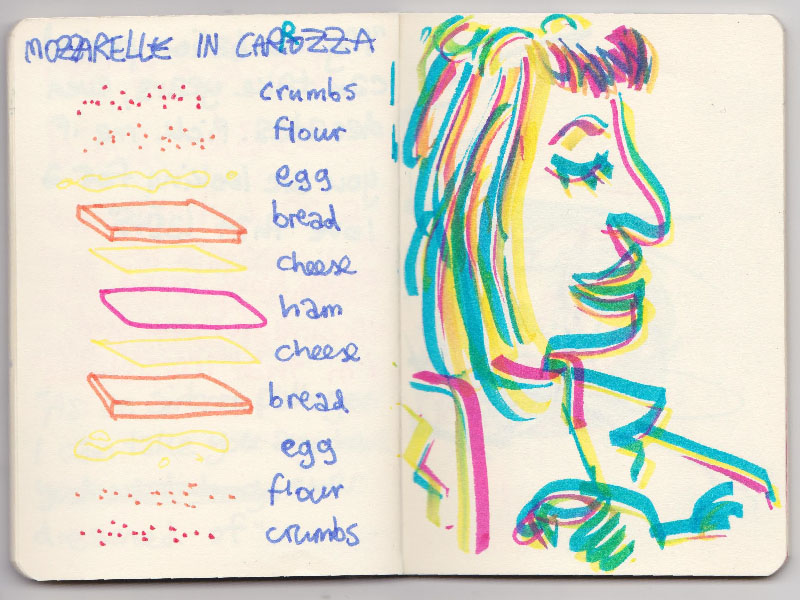 MOZZARELLE IN CARROZZA
crumbs
flour
egg
bread
cheese
ham
cheese
bread
egg
flour
crumbs